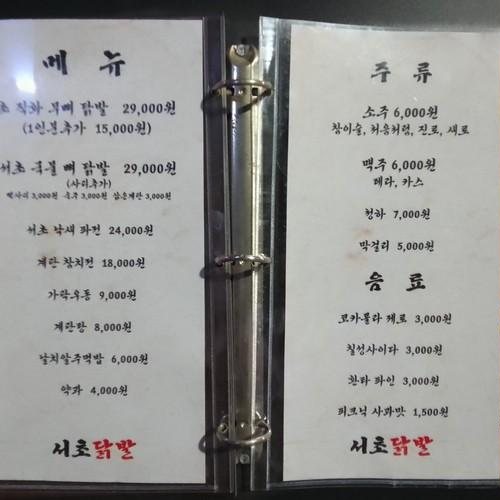 메뉴
초 직화 무뼈 닭발 29,000원
(1인분추가 15,000원)
서초 국물 뼈 닭발 29,000원
(사리추가)
3,000원 3,000원 삶은계란 3,000원
서초 낙새 파전 24,000원
계란 참치전 18,000원
가락우동 9,000원
계란탕 8,000원
날치알주먹밥 6,000원
약과 4,000원
서초닭발
주류
소주 6,000원
참이슬, 처음처럼, 진로, 새로
맥주 6,000원
테라, 카스
청하 7,000원
막걸리 5,000원
음료
코카콜라 제로 3,000원
칠성사이다 3,000원
환타 파인 3,000원
피크닉 사과맛 1,500원
서초닭발